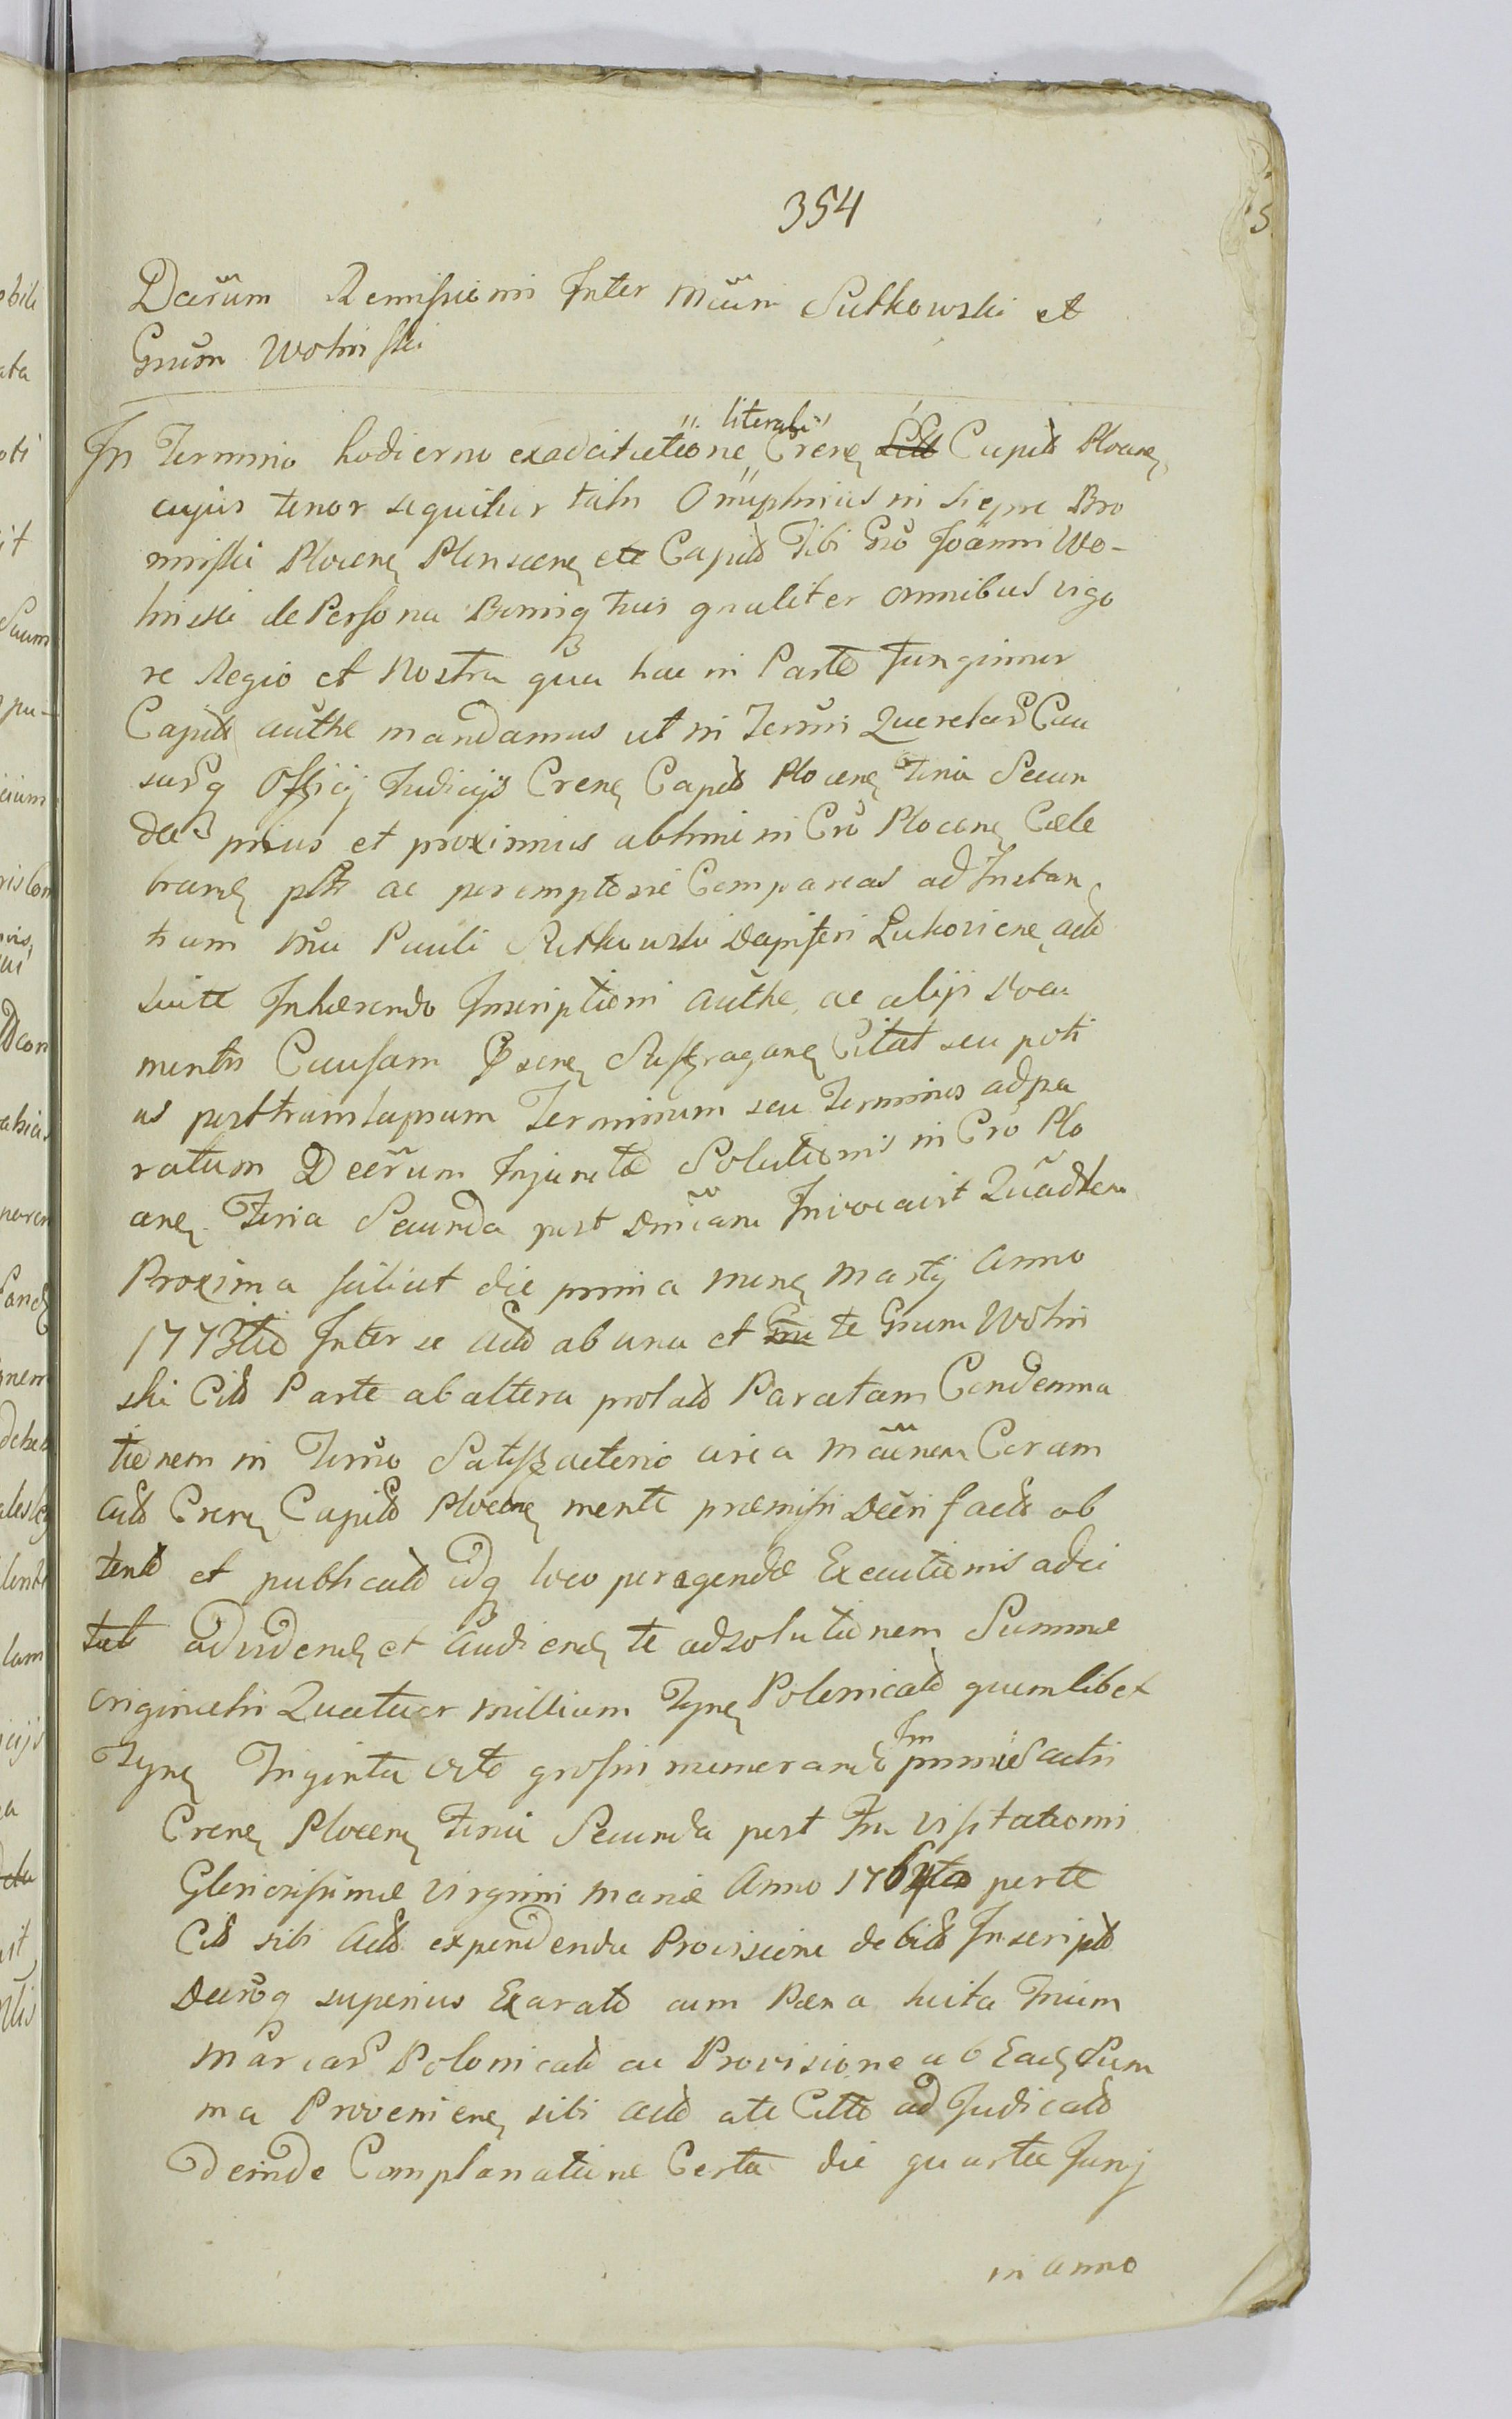 354
Decrūm Remissionis Inter Mcum Sutkowski et
Gnum Wolinski
literali
In Termino hodierno exadcitatione Crens Capit Plocens
cujus tenor sequitur talis Onuphrius in Siepre Bro
niski Plocens Plonscens etc Capit Tibi Gno Joanni Wo-
linski de Persona Bonisq tuis gnaliter omnibus vigo
re Regio et Nostra qua hac in Parte fungimur
Capit authe mandamus ut in Termi Querelar Cau
sarq Officij Judicijs Crens Capit Plocens Feria Secun
da prius et proximius abhinc in Cro Plocens Cele
brand pltr ac peremptorie Compareas ad Instan
tiam Mci Pauli Rutkowski Dapiferi Lukoviens act
suite Inhærendo Inscriptioni authe ac alijs Docu
mentis Causam Psens Suffragans Citat seu poti
us post translapsum Terminum seu Terminos ad pa
ratum Decrum Injunctæ Solutionis in Cro Plo
cens Feria Secunda post Dnicam Invocavit Quadlem
Proxima scilicet die prima Mens Martij Anno
1773tio Inter se act ab una et te Gnum Wolin
ski Cit Parte ab altera prolat Paratam Condemna
tionem in Termo Satisfactorio circa Mcinem Coram
act Crens Capit Plocens mente præmissi Decri fact ob
tent et publicat idq loco peragendæ Executionis adci
tat ad vidend et audiend te ad solutionem Summæ
originalis Quatuor Millium Fpns Polonicat quemlibet
Fpns Triginta octo grossis numerand Im primis actis
Crens Plocens Feria Secunda post Fm Visitationis
Gloriosissimæ Virginis Mariæ Anno 176 per te
Cit sibi Act expendenda Provisione debit Inscript
Decroq superius Exarat cum Pæna luita Trium
Marcar Polonicat ac Provisione ab Ead Sum
ma Proveniens sibi act a te Citto ad Judicat
Deinde Complanatione Certa die quarta Junij
in anno